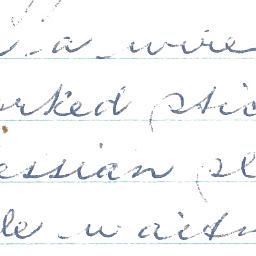 a wire
orked stic
essian pl
le waitn